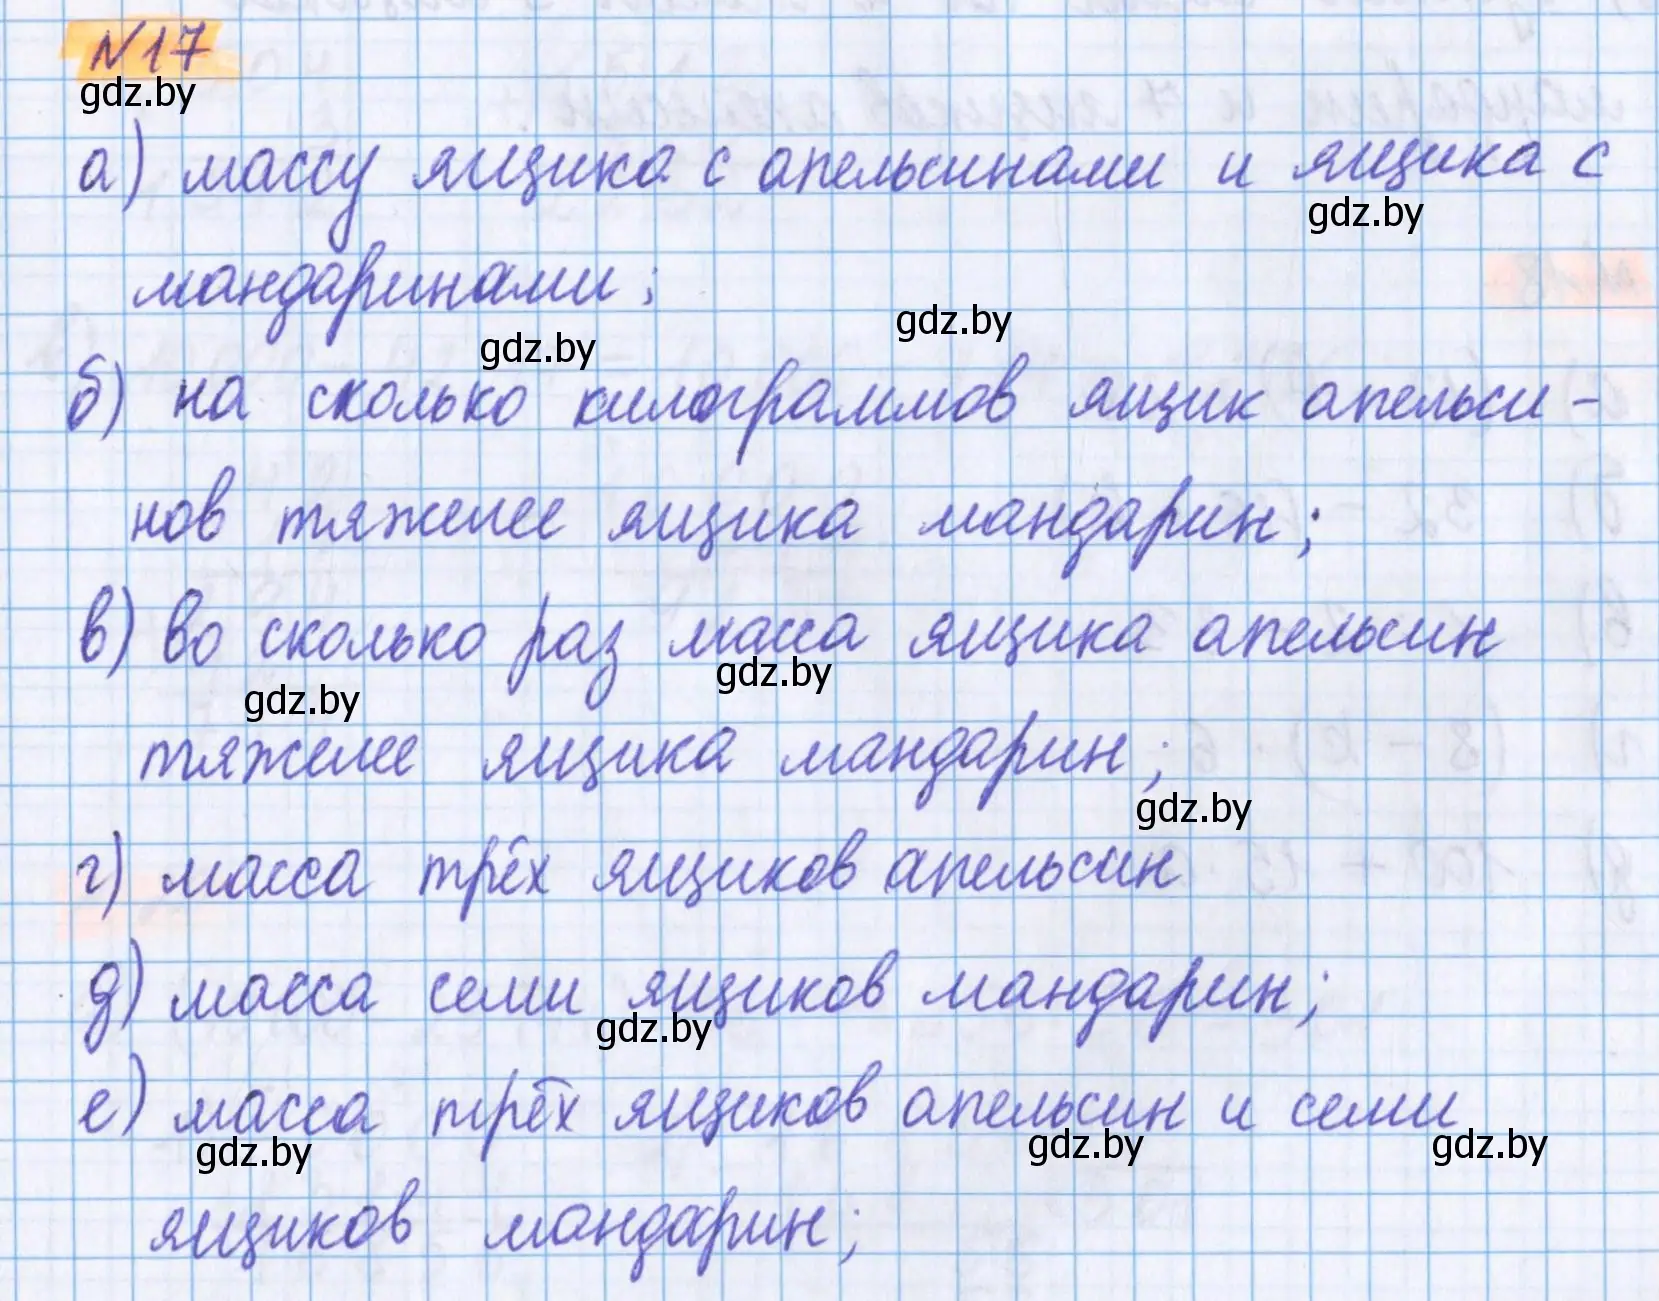 №17
gdz.by
а) массу ящика с апельсинами и ящика с
gdz.by
мандаринами;
gdz.by
gdz.by
б) на сколько килограммов ящик апельси-
нов тяжелее ящика мандарин;
в) во сколько раз масса ящика апельсин
gdz.by
gdz.by
тяжелее ящика мандарин;
gdz.by
г) масса трёх ящиков апельсин
д) масса семи ящиков мандарин;
gdz.by
е) масса трёх ящиков апельсин и семи
gdz.by
gdz.by
gdz.by
ящиков мандарин;